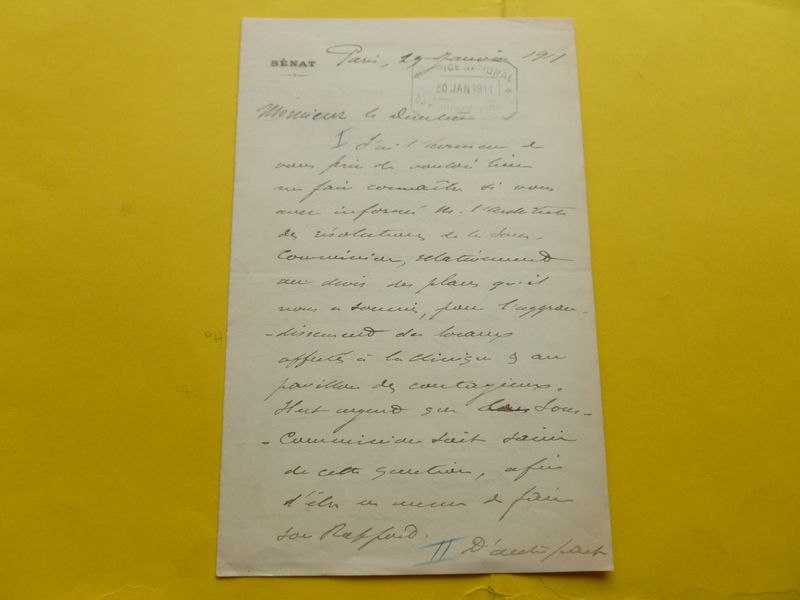 SÉNAT
Paris, 29 Janvier 1911
NATIONAL
30 JAN 1911
Monsieur le Directeur
I J'ai l'honneur de
vous prier de vouloir bien
me faire connaître si vous
avez informé M. l'architecte
des résolutions de la Sous-
Commission, relativement
au devis des plans qu'il
nous a soumis, pour l'aggran-
-dissement des locaux
affectés à la Clinique & au
pavillon des contagieux.
Il est urgent que Sous-
-Commission soit saisie
de cette question, afin
d'être en mesure de faire
son Rapport.
II D'autre part